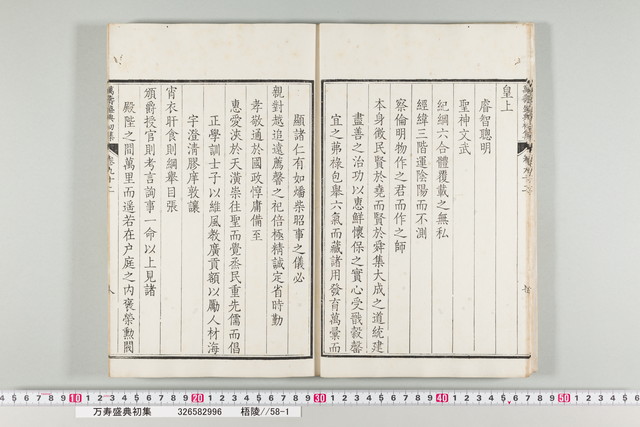 皇上
睿智聰明
聖神文武
紀綱六合體覆載之無私
經緯三階運陰陽而不測
察倫明物作之君而作之師
本身徵民賢於堯而賢於舜集大成之道統建
盡善之治功以惠鮮懷保之實心受戬穀罄
宜之茀祿包舉六氣而藏諸用發育萬彙而
顯諸仁有如燔柴昭事之儀必
親對越追遠薦馨之祀倍極精誠定省時勤
孝敬通於國政惇庸備至
惠愛浹於天潢崇往聖而覺烝民重先儒而倡
正學訓士子以維風教廣貢額以勵人材海
宇澄清膠庠敦讓
宵衣旰食則綱舉目張
頒爵授官則考言詢事一命以上見諸
殿陛之間萬里而遥若在户庭之内褒榮勲閥
萬壽盛典初集
10 20 30 40 50
万寿盛典初集 326582996 梧陵//58-1